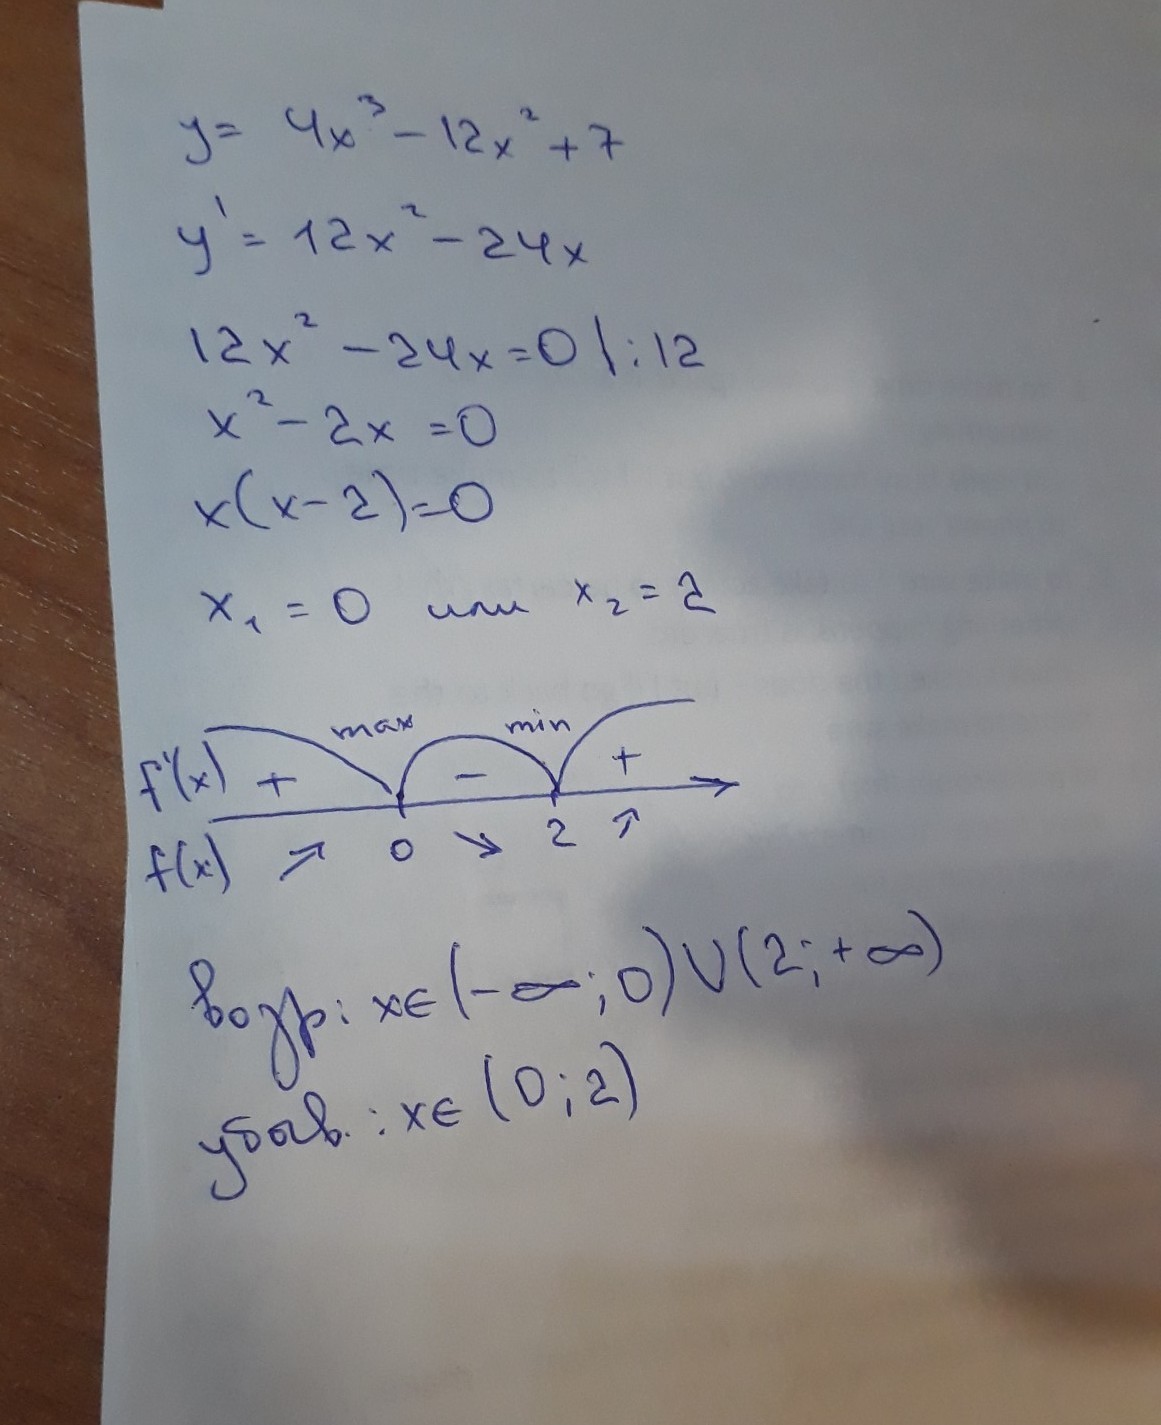 y = 4x³ - 12x² + 7
y' = 12x² - 24x
12x² - 24x = 0 |:12
x² - 2x = 0
x(x-2)=0
x₁ = 0 или x₂ = 2
max min
f'(x) + - +
0 2
f(x) ↗ ↘ ↗
возр: x∈(-∞;0)∪(2;+∞)
убыв.: x∈(0;2)